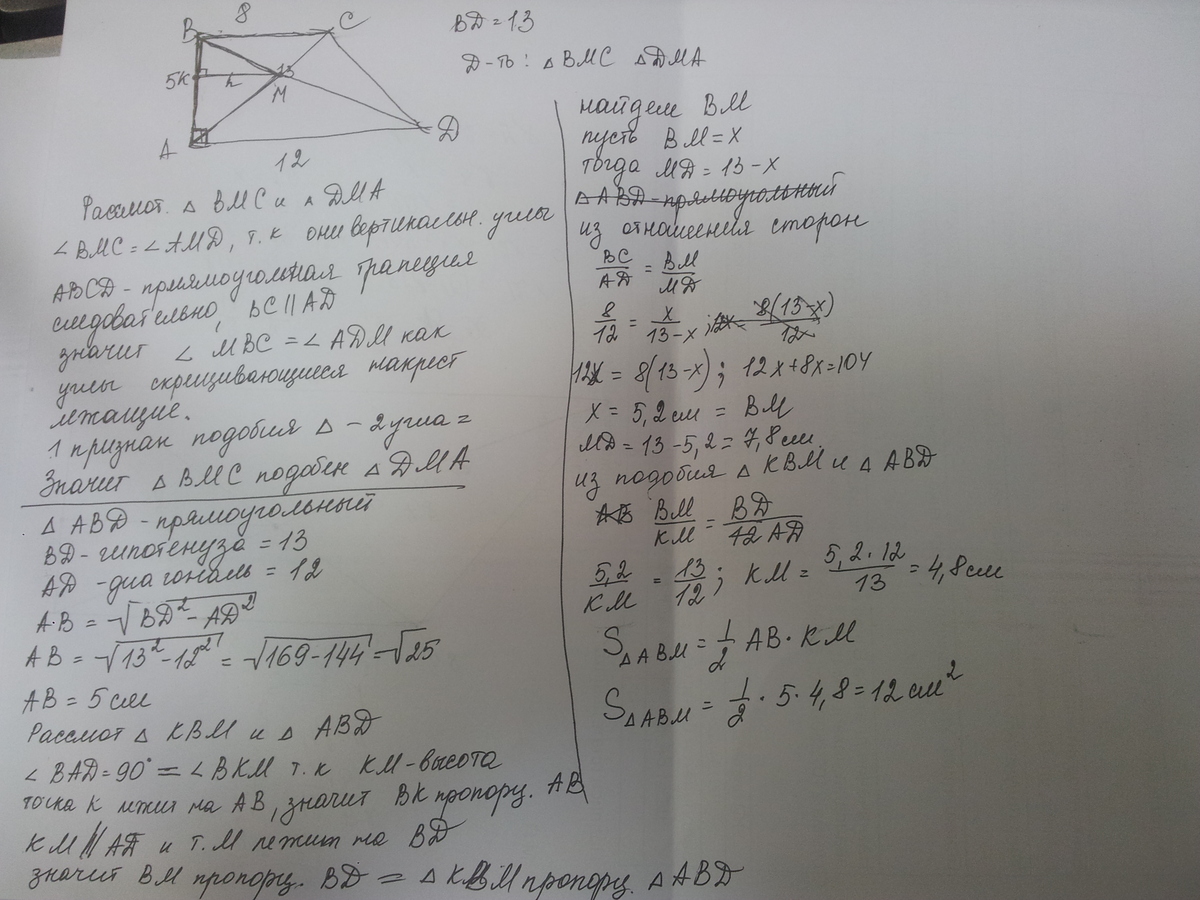 8
B
C
5
K
h
13
M
A
D
12
BD = 13
Д-ть: △ BMC △ DMA
Рассмот. △ BMC и △ DMA
∠BMC = ∠AMD, т.к они вертикальн. углы
ABCD - прямоугольная трапеция
следовательно, BC || AD
значит ∠ MBC = ∠ ADM как
углы скрещивающиеся накрест
лежащие.
1 признак подобия △ - 2 угла =
Значит △ BMC подобен △ DMA
△ ABD - прямоугольный
BD - гипотенуза = 13
AD - диагональ = 12
AB = √BD² - AD²
AB = √13² - 12² = √169 - 144 = √25
AB = 5 см
Рассмот △ KBM и △ ABD
∠ BAD = 90° = ∠ BKM т.к KM - высота
точка K лежит на AB, значит BK пропорц. AB
KM || AD и т. M лежит на BD
значит BM пропорц. BD = △ KBM пропорц. △ ABD
найдем BM
пусть BM = x
тогда MD = 13 - x
△ ABD - прямоугольный
из отношения сторон
BC/AD = BM/MD
8/12 = x/13-x ; 12x = 8(13-x)/12
12x = 8(13-x) ; 12x + 8x = 104
x = 5,2 см = BM
MD = 13 - 5,2 = 7,8 см.
из подобия △ KBM и △ ABD
AB BM/KM = BD/12 AD
5,2/KM = 13/12 ; KM = 5,2 · 12/13 = 4,8 см
S△ABM = 1/2 AB · KM
S△ABM = 1/2 · 5 · 4,8 = 12 см²